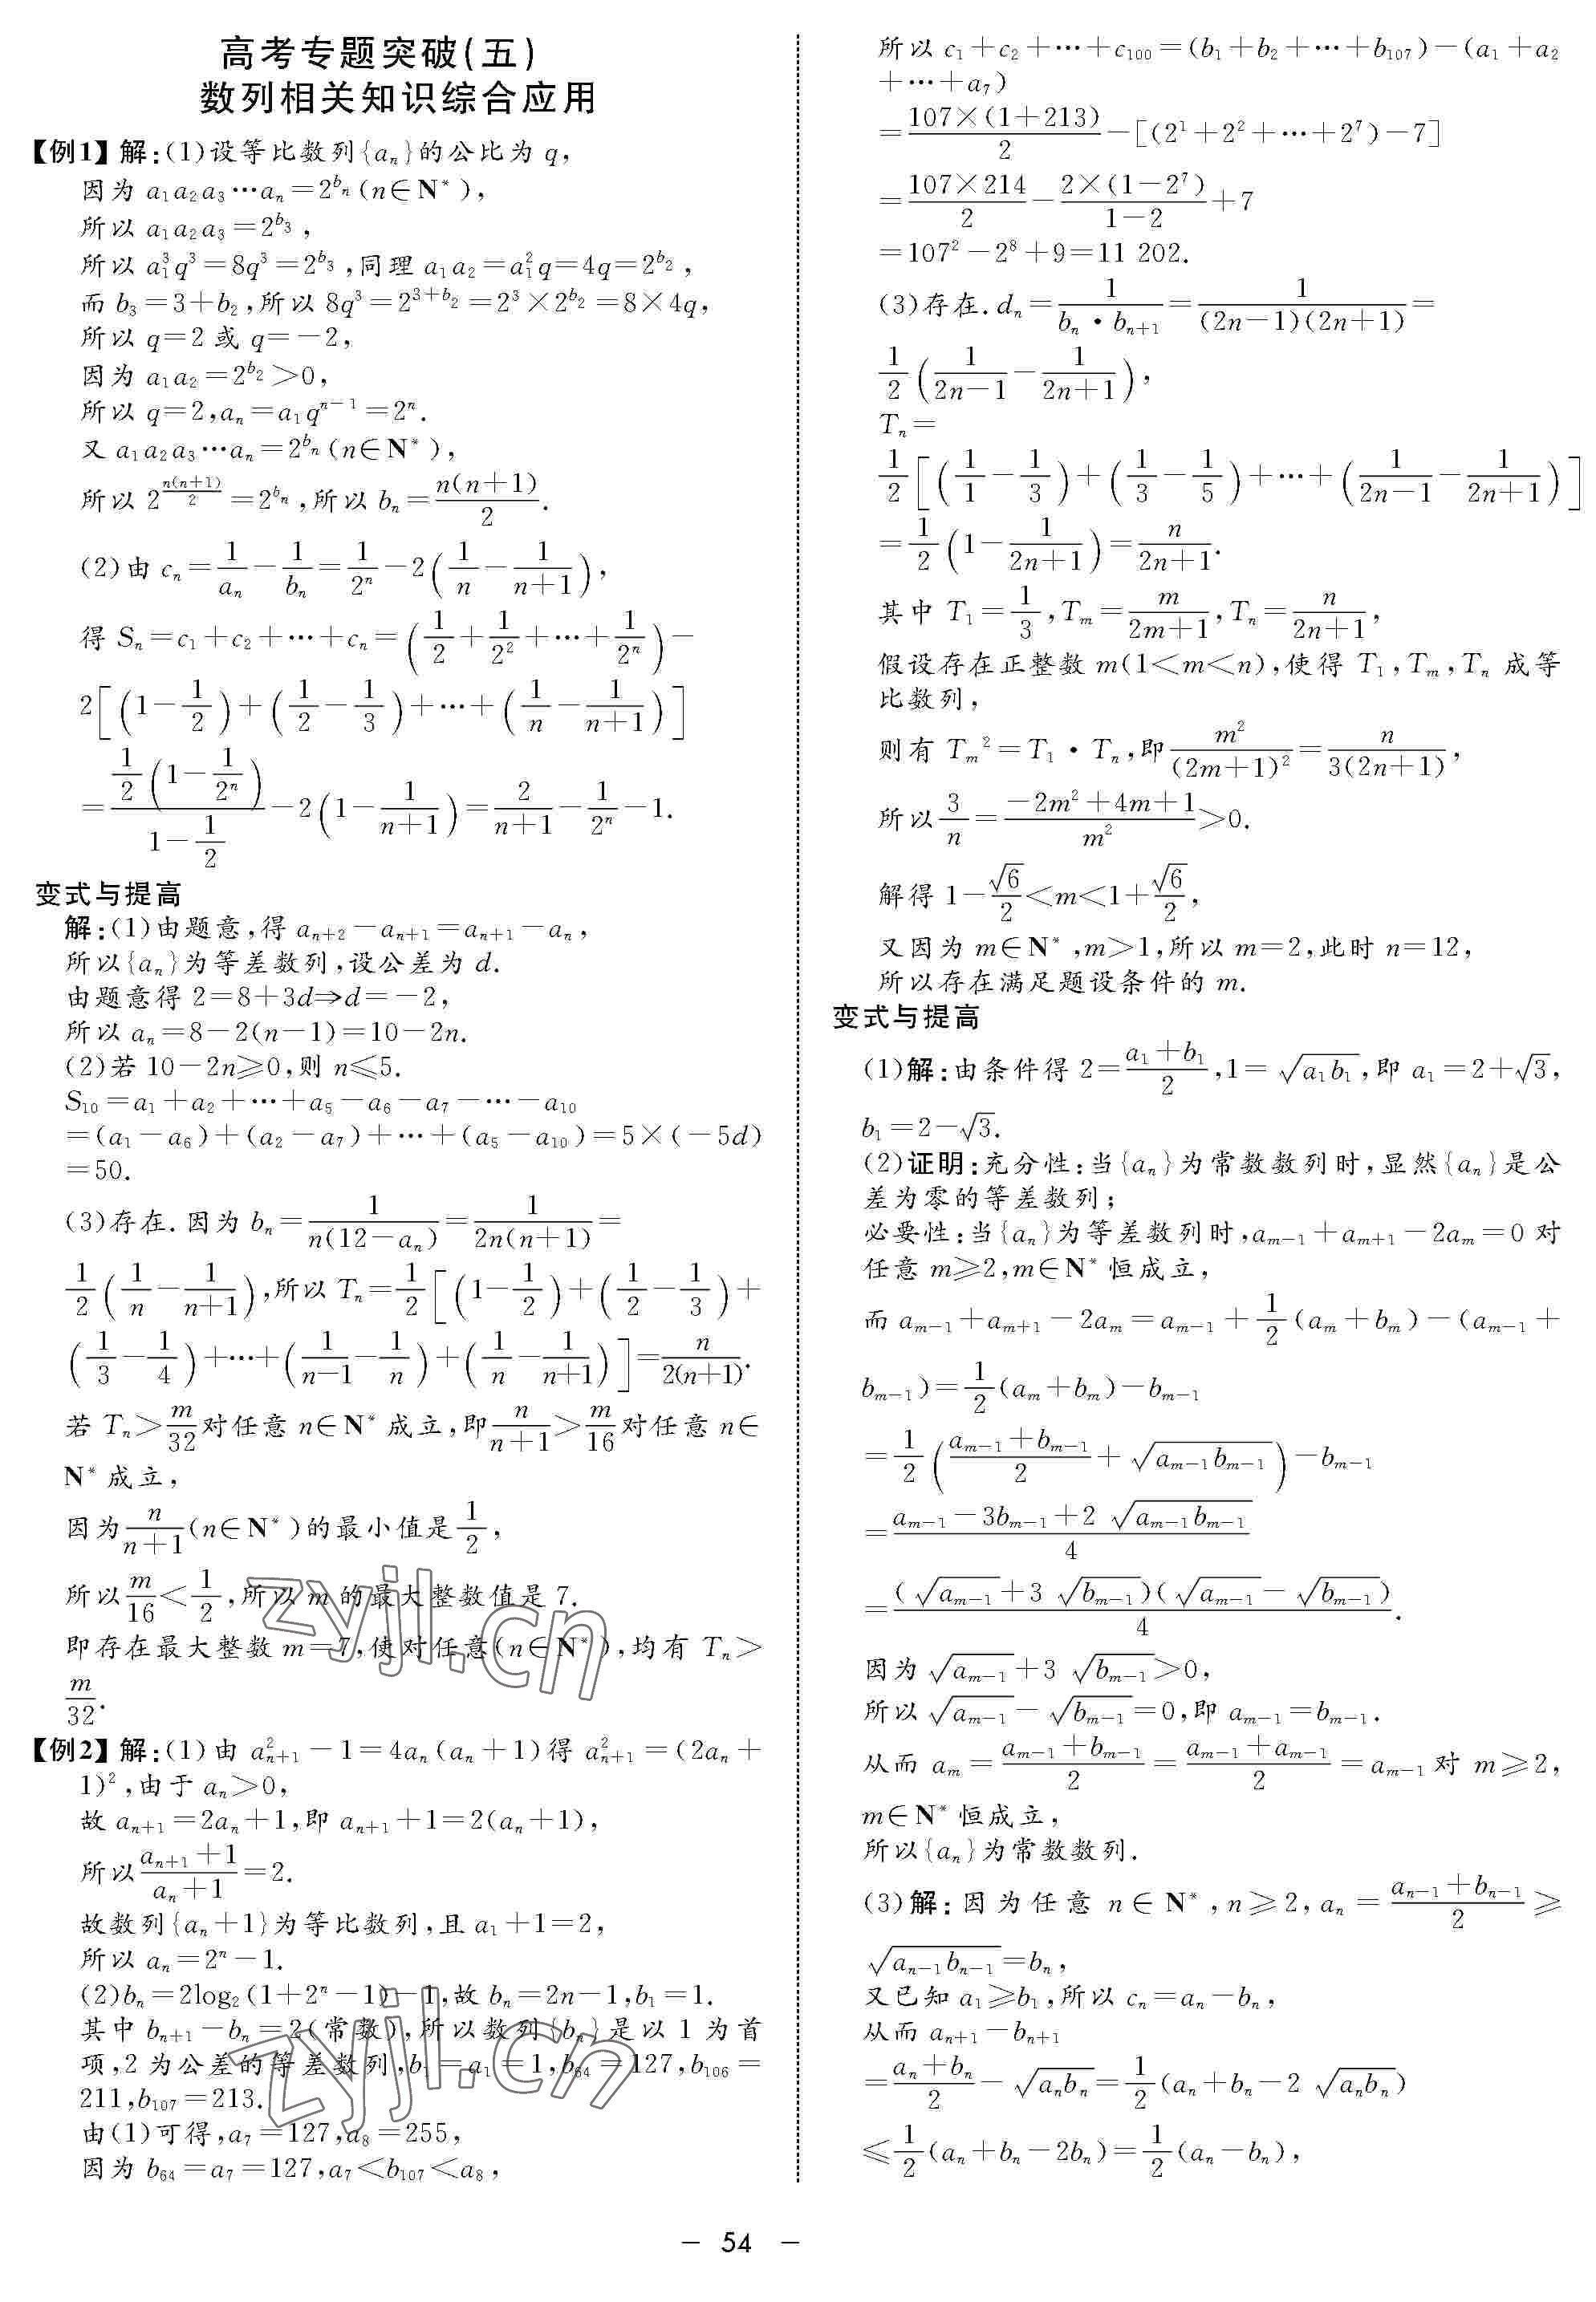 高考专题突破(五)
数列相关知识综合应用
【例1】解:(1)设等比数列{aₙ}的公比为 q,
因为 a₁a₂a₃⋯aₙ=2^{bₙ}(n∈N*),
所以 a₁a₂a₃=2^{b₃},
所以 a₁³q³=8q³=2^{b₃},同理 a₁a₂=a₁²q=4q=2^{b₂},
而 b₃=3+b₂,所以 8q³=2^{3+b₂}=2³×2^{b₂}=8×4q,
所以 q=2 或 q=-2,
因为 a₁a₂=2^{b₂}>0,
所以 q=2,aₙ=a₁q^{n-1}=2ⁿ.
又 a₁a₂a₃⋯aₙ=2^{bₙ}(n∈N*),
所以 2^{n(n+1)/2}=2^{bₙ},所以 bₙ=\frac{n(n+1)}{2}.
(2)由 cₙ=\frac{1}{aₙ}-\frac{1}{bₙ}=\frac{1}{2ⁿ}-2(\frac{1}{n}-\frac{1}{n+1}),
得 Sₙ=c₁+c₂+⋯+cₙ=(\frac{1}{2}+\frac{1}{2²}+⋯+\frac{1}{2ⁿ})-
2[(1-\frac{1}{2})+(\frac{1}{2}-\frac{1}{3})+⋯+(\frac{1}{n}-\frac{1}{n+1})]
=\frac{\frac{1}{2}(1-\frac{1}{2ⁿ})}{1-\frac{1}{2}}-2(1-\frac{1}{n+1})=\frac{2}{n+1}-\frac{1}{2ⁿ}-1.
变式与提高
解:(1)由题意,得 a_{n+2}-a_{n+1}=a_{n+1}-aₙ,
所以{aₙ}为等差数列,设公差为 d.
由题意得 2=8+3d⇒d=-2,
所以 aₙ=8-2(n-1)=10-2n.
(2)若 10-2n≥0,则 n≤5.
S₁₀=a₁+a₂+⋯+a₅-a₆-a₇-⋯-a₁₀
=(a₁-a₆)+(a₂-a₇)+⋯+(a₅-a₁₀)=5×(-5d)
=50.
(3)存在.因为 bₙ=\frac{1}{n(12-aₙ)}=\frac{1}{2n(n+1)}=
\frac{1}{2}(\frac{1}{n}-\frac{1}{n+1}),所以 Tₙ=\frac{1}{2}[(1-\frac{1}{2})+(\frac{1}{2}-\frac{1}{3})+
(\frac{1}{3}-\frac{1}{4})+⋯+(\frac{1}{n-1}-\frac{1}{n})+(\frac{1}{n}-\frac{1}{n+1})]=\frac{n}{2(n+1)}.
若 Tₙ>\frac{m}{32}对任意 n∈N* 成立,即\frac{n}{n+1}>\frac{m}{16}对任意 n∈
N* 成立,
因为\frac{n}{n+1}(n∈N*)的最小值是\frac{1}{2},
所以\frac{m}{16}<\frac{1}{2},所以 m 的最大整数值是 7.
即存在最大整数 m=7,使对任意(n∈N*),均有 Tₙ>
\frac{m}{32}.
【例2】解:(1)由 a²_{n+1}-1=4aₙ(aₙ+1)得 a²_{n+1}=(2aₙ+
1)²,由于 aₙ>0,
故 a_{n+1}=2aₙ+1,即 a_{n+1}+1=2(aₙ+1),
所以\frac{a_{n+1}+1}{aₙ+1}=2.
故数列{aₙ+1}为等比数列,且 a₁+1=2,
所以 aₙ=2ⁿ-1.
(2)bₙ=2log₂(1+2ⁿ-1)-1,故 bₙ=2n-1,b₁=1.
其中 b_{n+1}-bₙ=2(常数),所以数列{bₙ}是以 1 为首
项,2 为公差的等差数列,b₁=a₁=1,b₆₄=127,b₁₀₆=
211,b₁₀₇=213.
由(1)可得,a₇=127,a₈=255,
因为 b₆₄=a₇=127,a₇<b₁₀₇<a₈,
所以 c₁+c₂+⋯+c₁₀₀=(b₁+b₂+⋯+b₁₀₇)-(a₁+a₂
+⋯+a₇)
=\frac{107×(1+213)}{2}-[(2¹+2²+⋯+2⁷)-7]
=\frac{107×214}{2}-\frac{2×(1-2⁷)}{1-2}+7
=107²-2⁸+9=11 202.
(3)存在.dₙ=\frac{1}{bₙ·b_{n+1}}=\frac{1}{(2n-1)(2n+1)}=
\frac{1}{2}(\frac{1}{2n-1}-\frac{1}{2n+1}),
Tₙ=
\frac{1}{2}[(\frac{1}{1}-\frac{1}{3})+(\frac{1}{3}-\frac{1}{5})+⋯+(\frac{1}{2n-1}-\frac{1}{2n+1})]
=\frac{1}{2}(1-\frac{1}{2n+1})=\frac{n}{2n+1}.
其中 T₁=\frac{1}{3},Tₘ=\frac{m}{2m+1},Tₙ=\frac{n}{2n+1},
假设存在正整数 m(1<m<n),使得 T₁,Tₘ,Tₙ 成等
比数列,
则有 Tₘ²=T₁·Tₙ,即\frac{m²}{(2m+1)²}=\frac{n}{3(2n+1)},
所以\frac{3}{n}=\frac{-2m²+4m+1}{m²}>0.
解得 1-\frac{√6}{2}<m<1+\frac{√6}{2},
又因为 m∈N*,m>1,所以 m=2,此时 n=12,
所以存在满足题设条件的 m.
变式与提高
(1)解:由条件得 2=\frac{a₁+b₁}{2},1=√(a₁b₁),即 a₁=2+√3,
b₁=2-√3.
(2)证明:充分性:当{aₙ}为常数数列时,显然{aₙ}是公
差为零的等差数列;
必要性:当{aₙ}为等差数列时,a_{m-1}+a_{m+1}-2aₘ=0 对
任意 m≥2,m∈N* 恒成立,
而 a_{m-1}+a_{m+1}-2aₘ=a_{m-1}+\frac{1}{2}(aₘ+bₘ)-(a_{m-1}+
b_{m-1})=\frac{1}{2}(aₘ+bₘ)-b_{m-1}
=\frac{1}{2}(\frac{a_{m-1}+b_{m-1}}{2}+√(a_{m-1}b_{m-1}))-b_{m-1}
=\frac{a_{m-1}-3b_{m-1}+2√(a_{m-1}b_{m-1})}{4}
=\frac{(√a_{m-1}+3√b_{m-1})(√a_{m-1}-√b_{m-1})}{4}.
因为√a_{m-1}+3√b_{m-1}>0,
所以√a_{m-1}-√b_{m-1}=0,即 a_{m-1}=b_{m-1}.
从而 aₘ=\frac{a_{m-1}+b_{m-1}}{2}=\frac{a_{m-1}+a_{m-1}}{2}=a_{m-1}对 m≥2,
m∈N* 恒成立,
所以{aₙ}为常数数列.
(3)解:因为任意 n∈N*,n≥2,aₙ=\frac{a_{n-1}+b_{n-1}}{2}≥
√(a_{n-1}b_{n-1})=bₙ,
又已知 a₁≥b₁,所以 cₙ=aₙ-bₙ,
从而 a_{n+1}-b_{n+1}
=\frac{aₙ+bₙ}{2}-√(aₙbₙ)=\frac{1}{2}(aₙ+bₙ-2√(aₙbₙ))
≤\frac{1}{2}(aₙ+bₙ-2bₙ)=\frac{1}{2}(aₙ-bₙ),
- 54 -
zyjl.cn
zyjl.cn